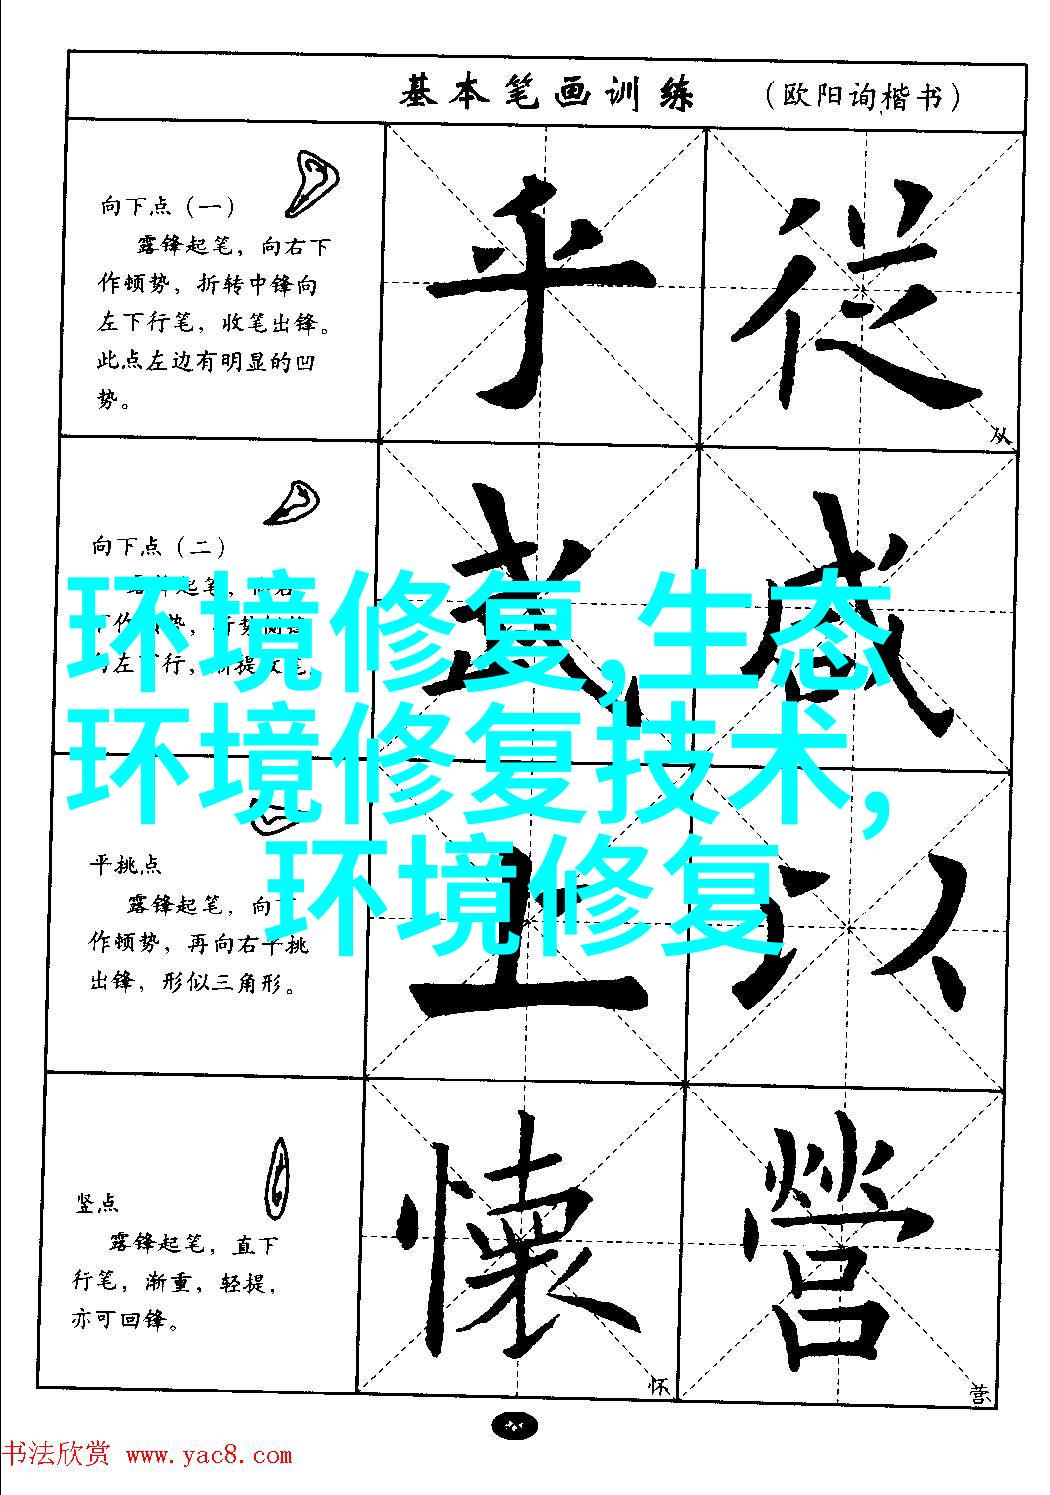 基本笔画训练 （欧阳询楷书）
向下点（一）
露锋起笔，向右下
作顿势，折转中锋向
左下行笔，收笔出锋。
此点左边有明显的凹
势。
乎 從
从
向下点（二）
露锋起笔，
作 势，折势侧锋
左 行，渐提收笔
武 感
环境修复,生态
环境修复技术,
环境修复
平挑点
露锋起笔，向下
作顿势，再向右平挑
出锋，形似三角形。
上 以
竖点
露锋起笔，直下
行笔，渐重，轻提，
亦可回锋。
懷 營
怀 营
书法欣赏 www.yac8.com